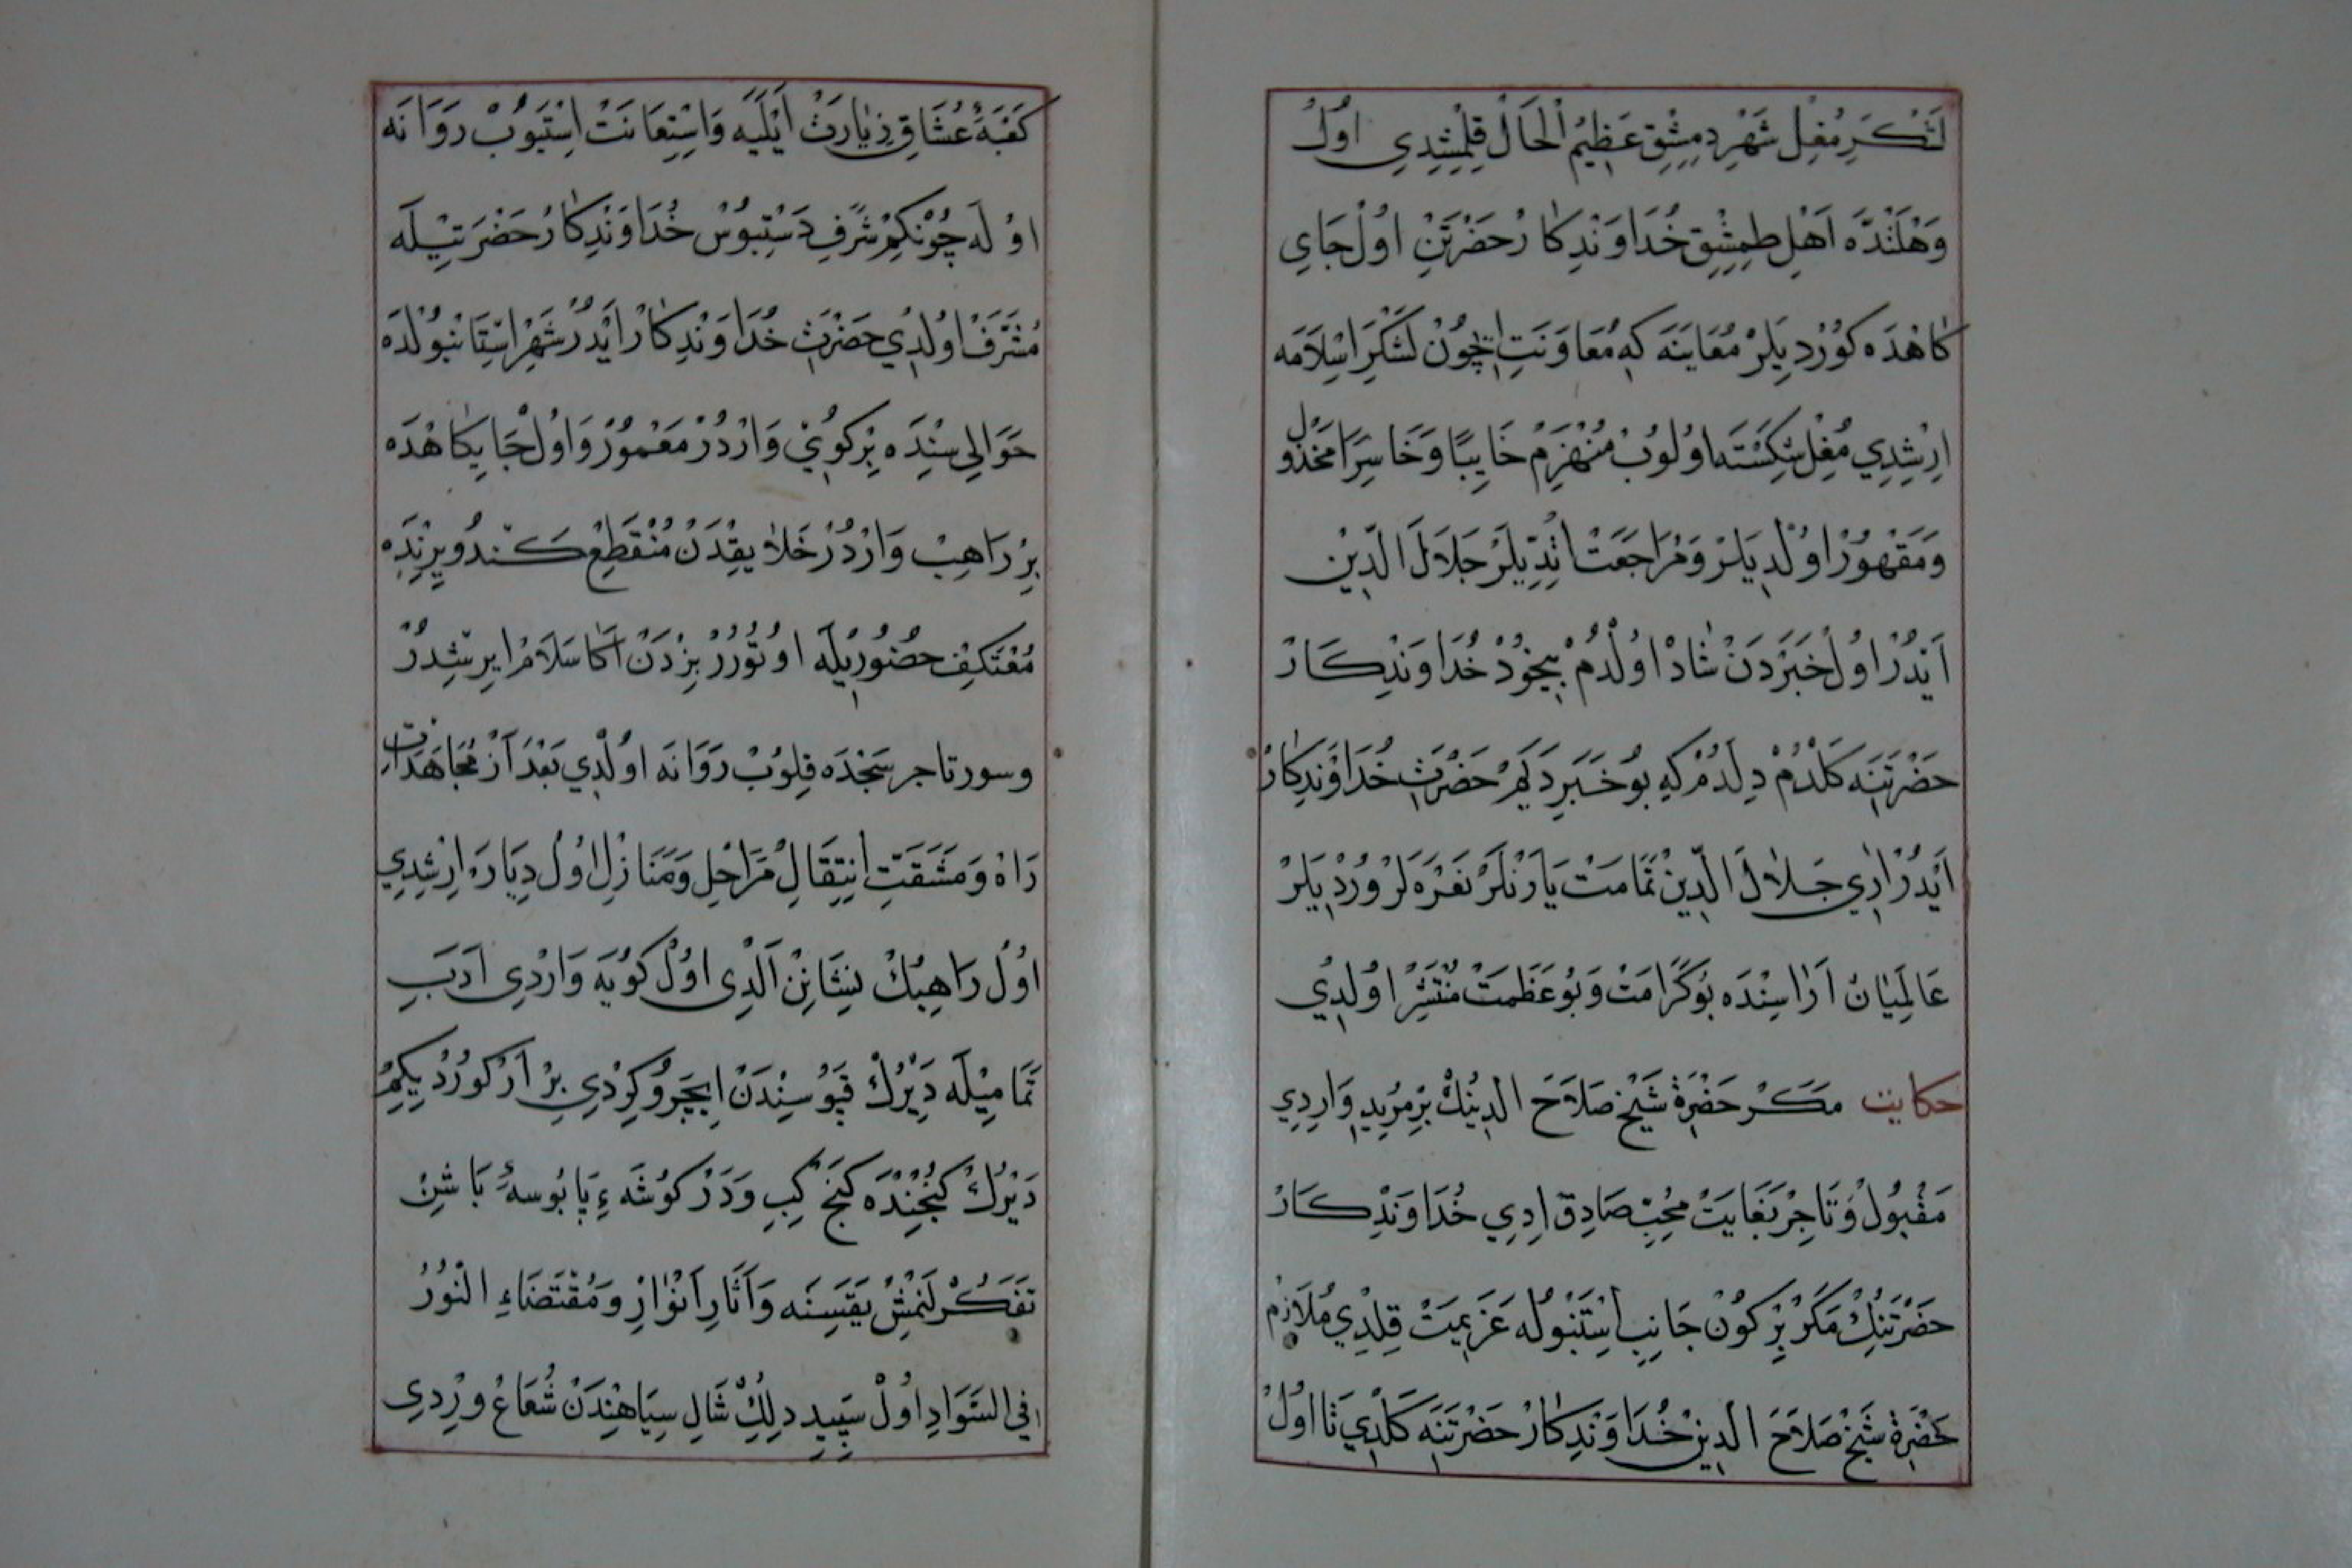 لَشْكَرِ مُغِلْ شَهْرِ دِمِشْقِ عَظِيمُ الْحَالْ قِلْمِشْدِي اوُلْ
وَهْلَتْدَه اَهْلِ طِمِشْقِ خُدَاوَنْدِكَارْ حَضْرَتِنِ اوُلْ جَايِ
كَاهْدَه كُورْدِيلَرْ مُعَايَنَه كِه مُعَاوَنَتِ اِچُونْ لَشْكَرِ اِسْلَامَه
اِرِشْدِي مُغِلْ شِكَسْتَه اوُلُوبْ مُنْهَزِمْ خَايِبًا وَخَاسِرًا مَخْذُولْ
وَمَقْهُورْ اوُلْدِيلَرْ وَمُرَاجَعَتْ اِتْدِيلَرْ جَلَالَ الدِّينْ
اَيْدُرْ اوُلْ خَبَرْدَنْ شَادْ اوُلْدُمْ بِيخُودْ خُدَاوَنْدِكَارْ
حَضْرَتِنَه كَلْدُمْ دِلَدُمْ كِه بُو خَبَرِ دَيَمْ حَضْرَتِ خُدَاوَنْدِكَارْ
اَيْدُرْ اَرِي جَلَالَ الدِّينْ تَمَامَتْ يَارَنْلَرْ نَعْرَه لَرْ وُرْدِيلَرْ
عَالَمِيَانْ اَرَاسِنْدَه بُو كَرَامَتْ وَبُو عَظَمَتْ مُنْتَشِرْ اوُلْدِي
حكايت مَكَرْ حَضْرَةِ شَيْخْ صَلَاحَ الدِينُكْ بِرْ مُرِيدِ وَارِدِي
مَقْبُولْ وَتَاجِرْ بَغَايَتْ مُحِبِّ صَادِقْ اِدِي خُدَاوَنْدِكَارْ
حَضْرَتِنُكْ مَكَرْ بِرْ كُونْ جَانِبِ اِسْتَنْبُولَه عَزِيمَتْ قِلْدِي مُلَازِمْ
حَضْرَةِ شَيْخْ صَلَاحَ الدِينْ خُدَاوَنْدِكَارْ حَضْرَتِنَه كَلْدِي تَا اوُلْ
كَعْبَۀِ عُشَّاقِ زِيَارَتْ اَيْلَيَه وَاسْتِعَانَتْ اِسْتَيُوبْ رَوَانَه
اوُلَه چُونْكِمْ شَرَفِ دَسْتبُوسْ خُدَاوَنْدِكَارْ حَضْرَتِيلَه
مُشَرَّفْ اوُلْدِي حَضْرَتِ خُدَاوَنْدِكَارْ اَيْدُرْ شَهْرِ اِسْتَانْبُولْدَه
حَوَالِي سِنْدَه بِرْ كُويْ وَارْدُرْ مَعْمُورْ وَاوُلْ جَايِكَاهْدَه
بِرْ رَاهِبْ وَارْدُرْ خَلَايِقْدَنْ مُنْقَطِعْ كَنْدُو يِرِنْدَه
مُعْتَكِفْ حُضُورِيلَه اوُتُورُرْ بِزْدَنْ اَكَا سَلَامْ اِيرِشْدُرْ
وسورتاجر سَجْدَه قِلُوبْ رَوَانَه اوُلْدِي بَعْدَ اَزْ مُجَاهَدَاتِ
رَاهْ وَمَشَقَّتِ اِنْتِقَالِ مَرَاحِلِ وَمَنَازِلْ اوُلْ دِيَارَه اِرِشْدِي
اوُلْ رَاهِبُكْ نِشَانِنْ اَلْدِي اوُلْ كُويَه وَارْدِي اَدَبِ
تَمَامِيلَه دَيْرُكْ قَپُوسِنْدَنْ اِيچَرُو كِرْدِي بِرْ اَرْ كُورْدِيكِمْ
دَيْرُكْ كُنْجِنْدَه كَنْجْ كِبِي وَدَرْ كُوشَه ءِ پَابُوسه بَاشِنْ
تَفَكُّرْلَنْمِشْ يَقَسِنَه وَآثَارِ اَنْوَارِ وَمُقْتَضَاءِ النُّورُ
فِي السَّوَادِ اوُلْ سَپِيدِ دِلِكْ شَالِ سِيَاهِنْدَنْ شُعَاعْ وِرْدِي